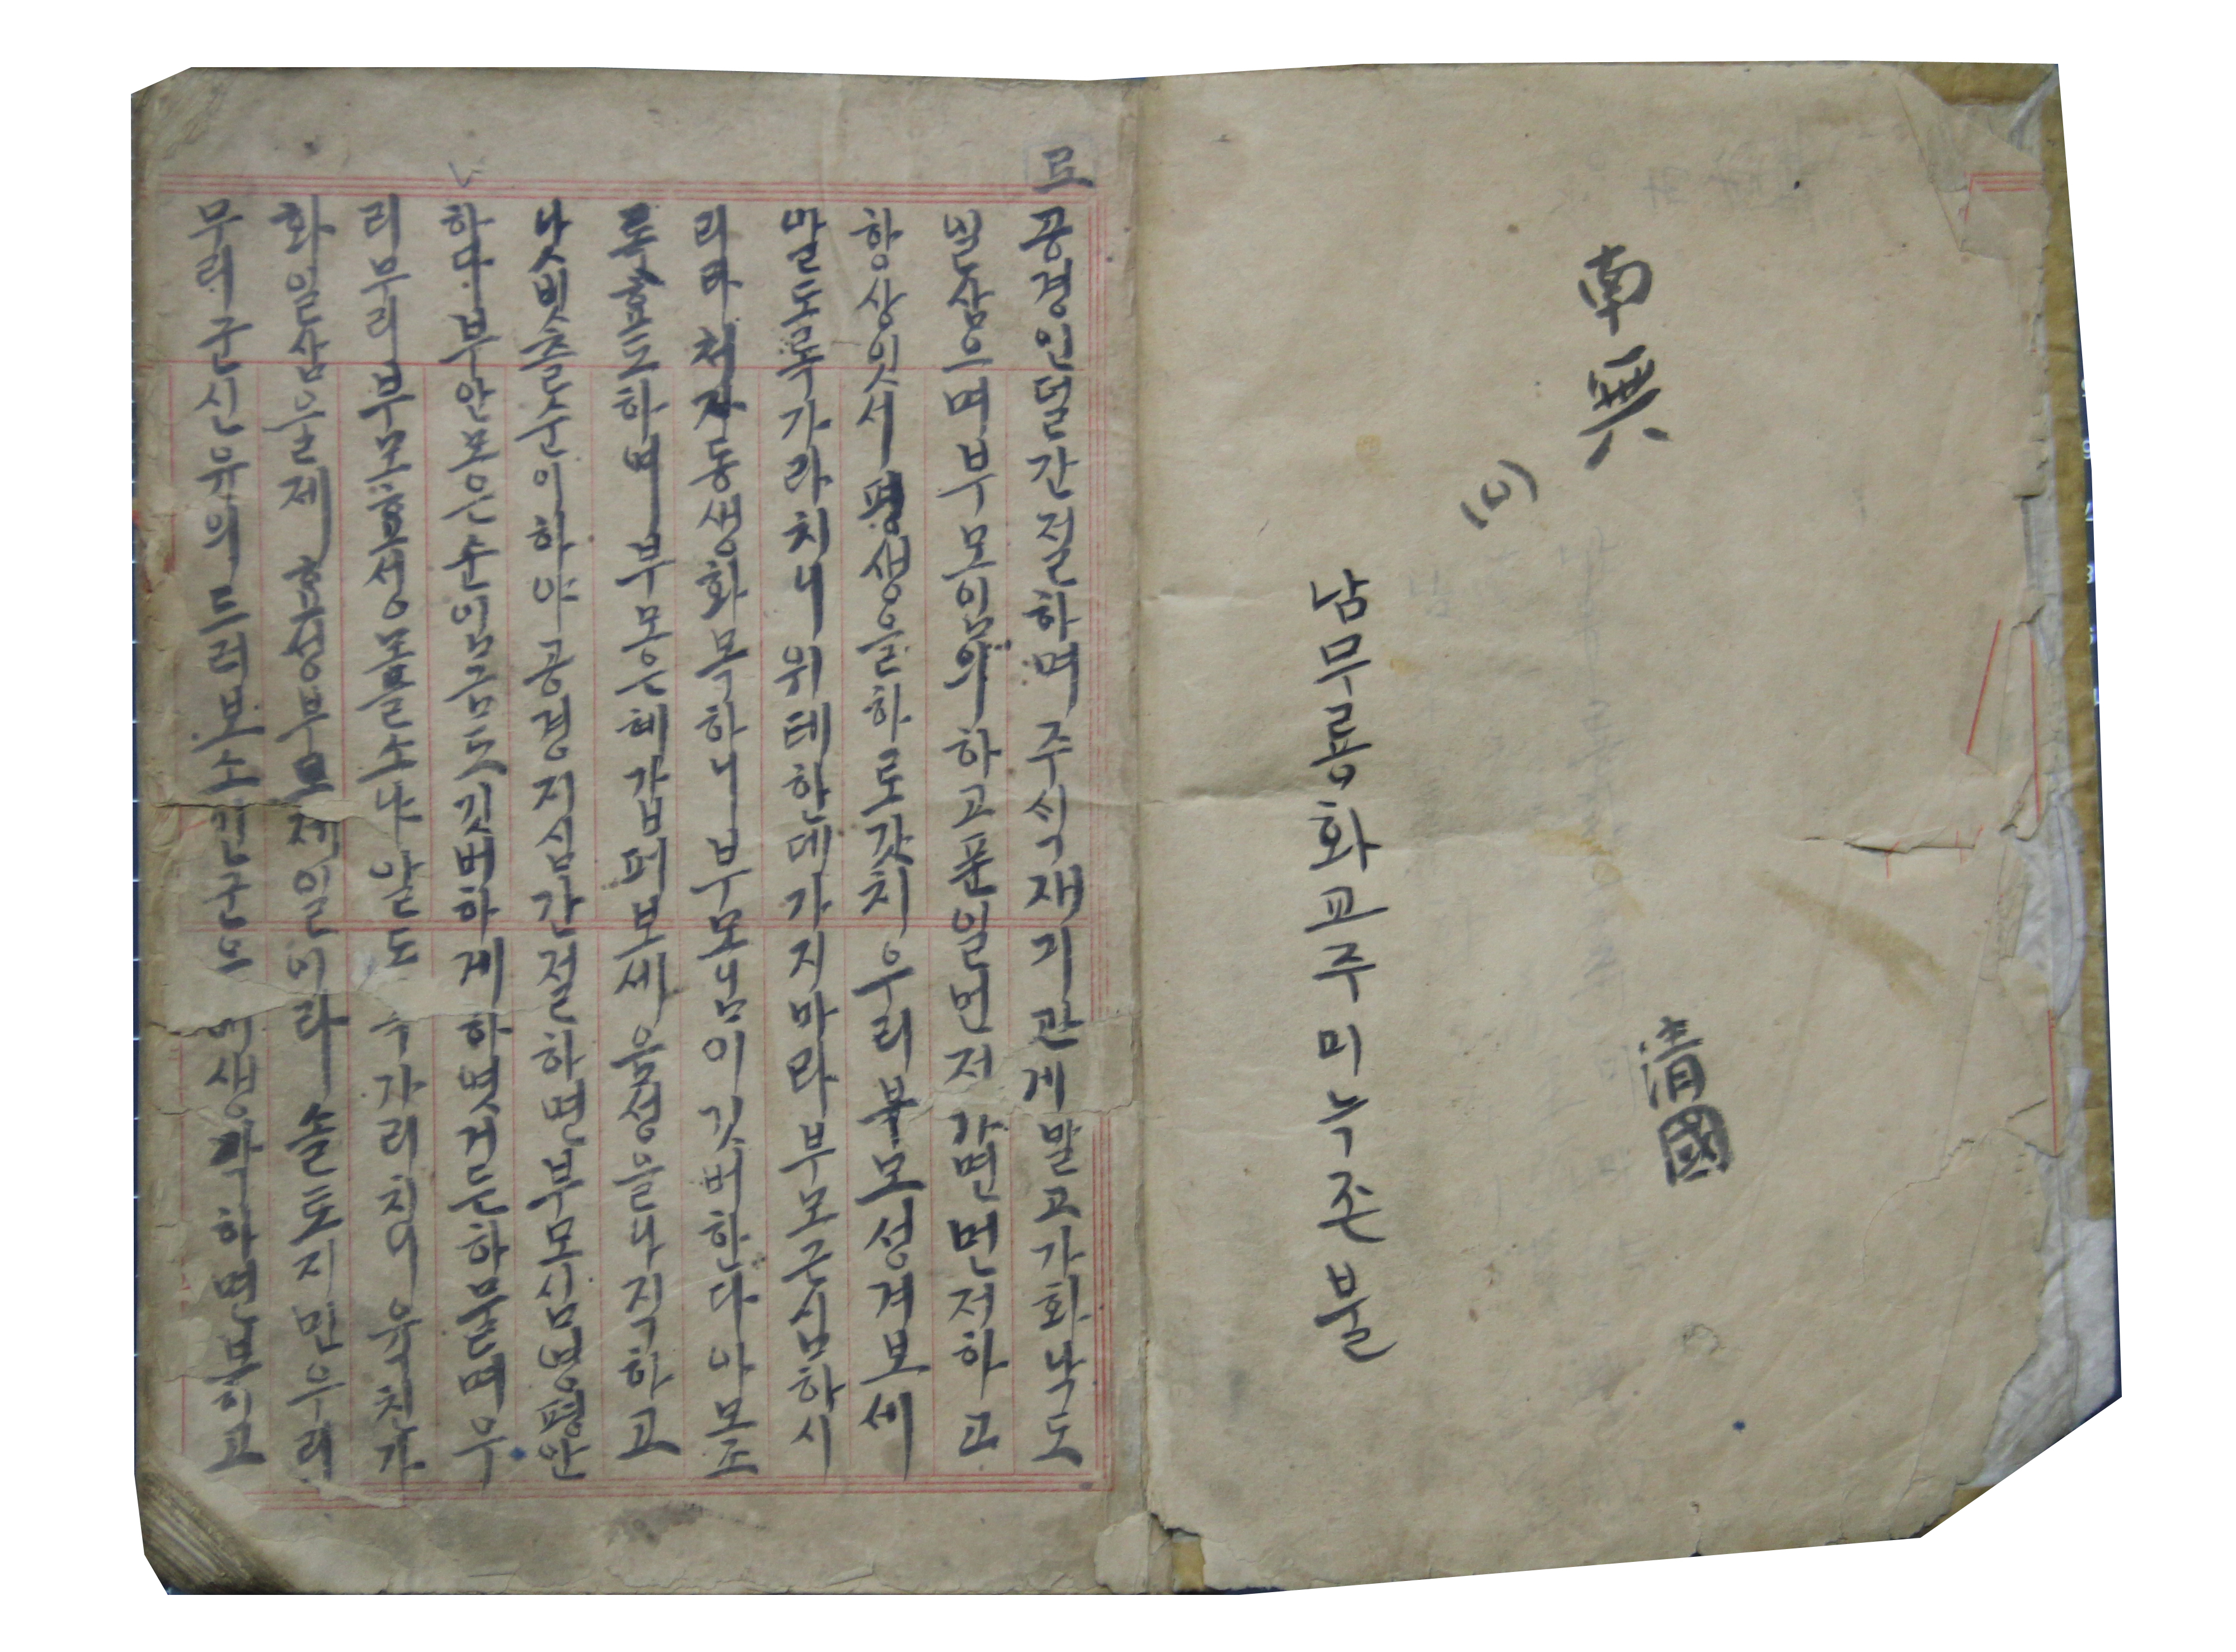 南無
清國
(미)
남무룡화교주미늑존불
모
공경인덜간절하며주식재기관게말고가화낙도
밤삼으며부모임의하고푼일먼저가면먼저하고
항상잇서평생을하로갓치우리부모성겨보세
말도록가라치니위테한데가지마라부모근심하시
리라처자동생화목하니부모님이깃버한다아모조
록효도하며부모은혜갑퍼보세음성을나직하고
낫빗츨순이하야공경지심간절하면부모심령평안
하다부안모은순임금도깃버하게하엿거든하물며우
리부리부모효성못홀소냐알도 가리치의육친가
화일삼을제효성부모제일이라솔도지민우리
무리군신유의드러보소 생각하면보하고